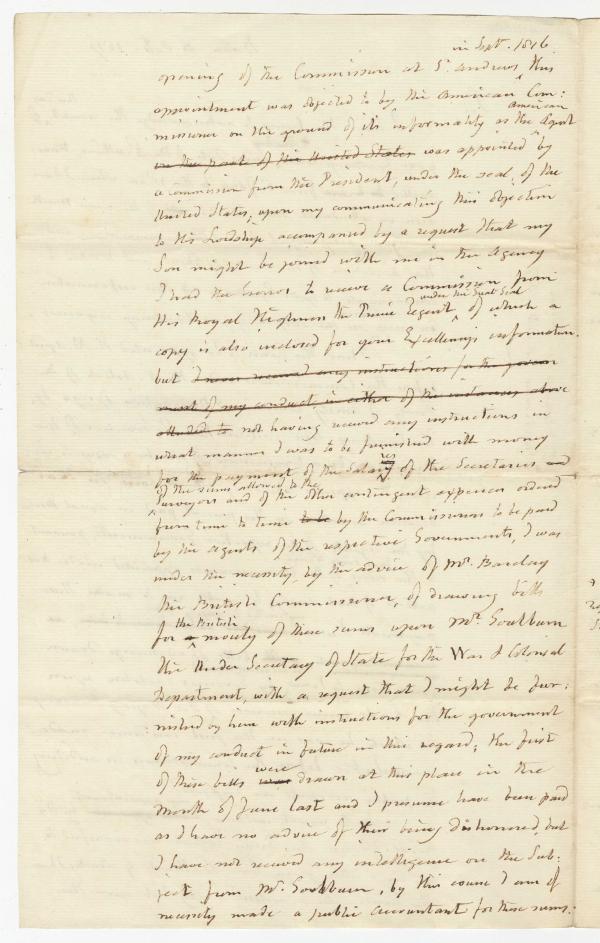 in Sept. 1816
opening of the Commission at St. Andrews this
appointment was objected to by the American Com:
American
missioner on the ground of its informality as the Agent
on the part of the United States was appointed by
a commission from the President, under the seal, of the
United States, upon my communicating this objection
to His Lordship accompanied by a request that my
Son might be joined with me in the Agency
I had the honor to receive a Commission from
under the Great Seal
His Royal Highness the Prince Regent, of which a
copy is also inclosed for your Excellency's information.
but I never received any instructions for the govern
ment of my conduct in either of the instances above
alluded to not having received any instructions in
what manner I was to be furnished with money
res
for the payment of the Salary of the Secretaries and
of the sums allowed to the
Surveyors and of the other contingent expences ordered
from time to time to be by the Commissioners to be paid
by the agents of the respective Governments, I was
under the necessity, by the advice of Mr. Barclay
the British Commissioner, of drawing bills
the British
for a moiety of these sums upon Mr. Goulburn
the Under Secretary of State for the War & Colonial
Department, with a request that I might be fur:
nished by him with instructions for the government
of my conduct in future in this regard; the first
were
of these bills was drawn at this place in the
Month of June last and I presume have been paid
as I have no advice of their being dishonored, but
I have not received any intelligence on the Sub:
ject from Mr. Goulburn, by this course I am of
necessity made a public accountant for these sums.